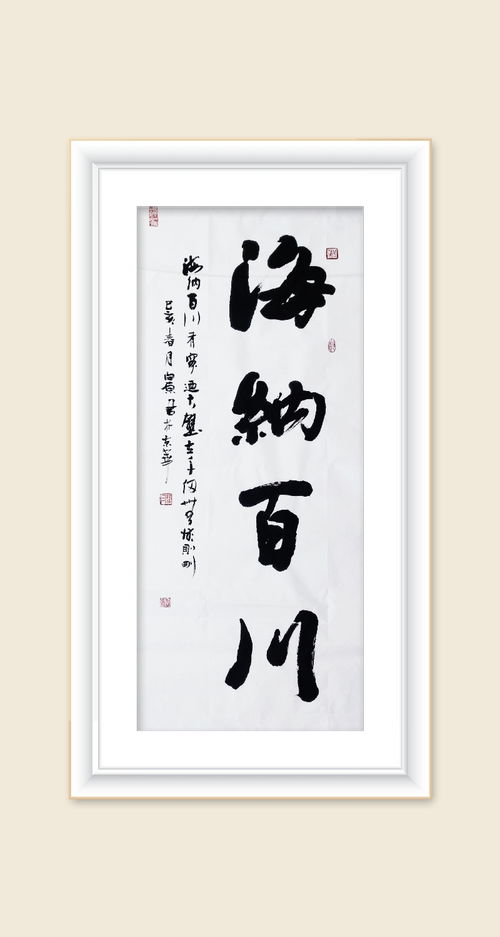 海纳百川
海纳百川有容乃大壁立千仞无欲则刚
己亥春月